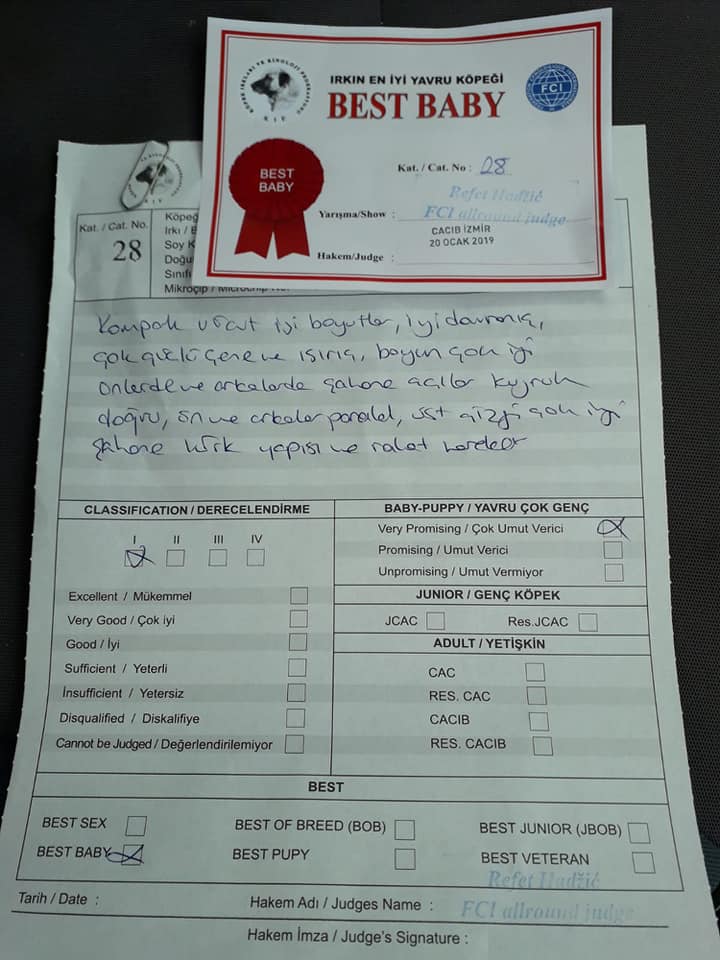 KÖPEK IRKLARI VE KİNOLOJİ FEDERASYONU
KIF
IRKIN EN İYİ YAVRU KÖPEĞİ
BEST BABY
FCI
BEST
BABY
Kat. / Cat. No : 28
Refet Hadžić
Yarışma/Show :
FCI allround judge
CACIB İZMİR
20 OCAK 2019
Hakem/Judge :
Kat. / Cat. No.
28
Köpeğ
Irkı / B
Soy K
Doğu
Sınıfı
Mikroçip / Microchip No.
Kompak vücut iyi boyutlar, iyi davranış,
çok güçlü çene ve ısırış, boyun çok iyi
önlerde ve arkalarda şahane açılar kuyruk
doğru, ön ve arkalar paralel, üst çizgi çok iyi
şahane kürk yapısı ve rahat hareket
CLASSIFICATION / DERECELENDİRME
I II III IV
Excellent / Mükemmel
Very Good / Çok iyi
Good / İyi
Sufficient / Yeterli
İnsufficient / Yetersiz
Disqualified / Diskalifiye
Cannot be Judged / Değerlendirilemiyor
BABY-PUPPY / YAVRU ÇOK GENÇ
Very Promising / Çok Umut Verici
Promising / Umut Verici
Unpromising / Umut Vermiyor
JUNIOR / GENÇ KÖPEK
JCAC Res.JCAC
ADULT / YETİŞKİN
CAC
RES. CAC
CACIB
RES. CACIB
BEST
BEST SEX BEST OF BREED (BOB) BEST JUNIOR (JBOB)
BEST BABY BEST PUPY BEST VETERAN
Refet Hadžić
Tarih / Date : Hakem Adı / Judges Name : FCI allround judge
Hakem İmza / Judge's Signature :